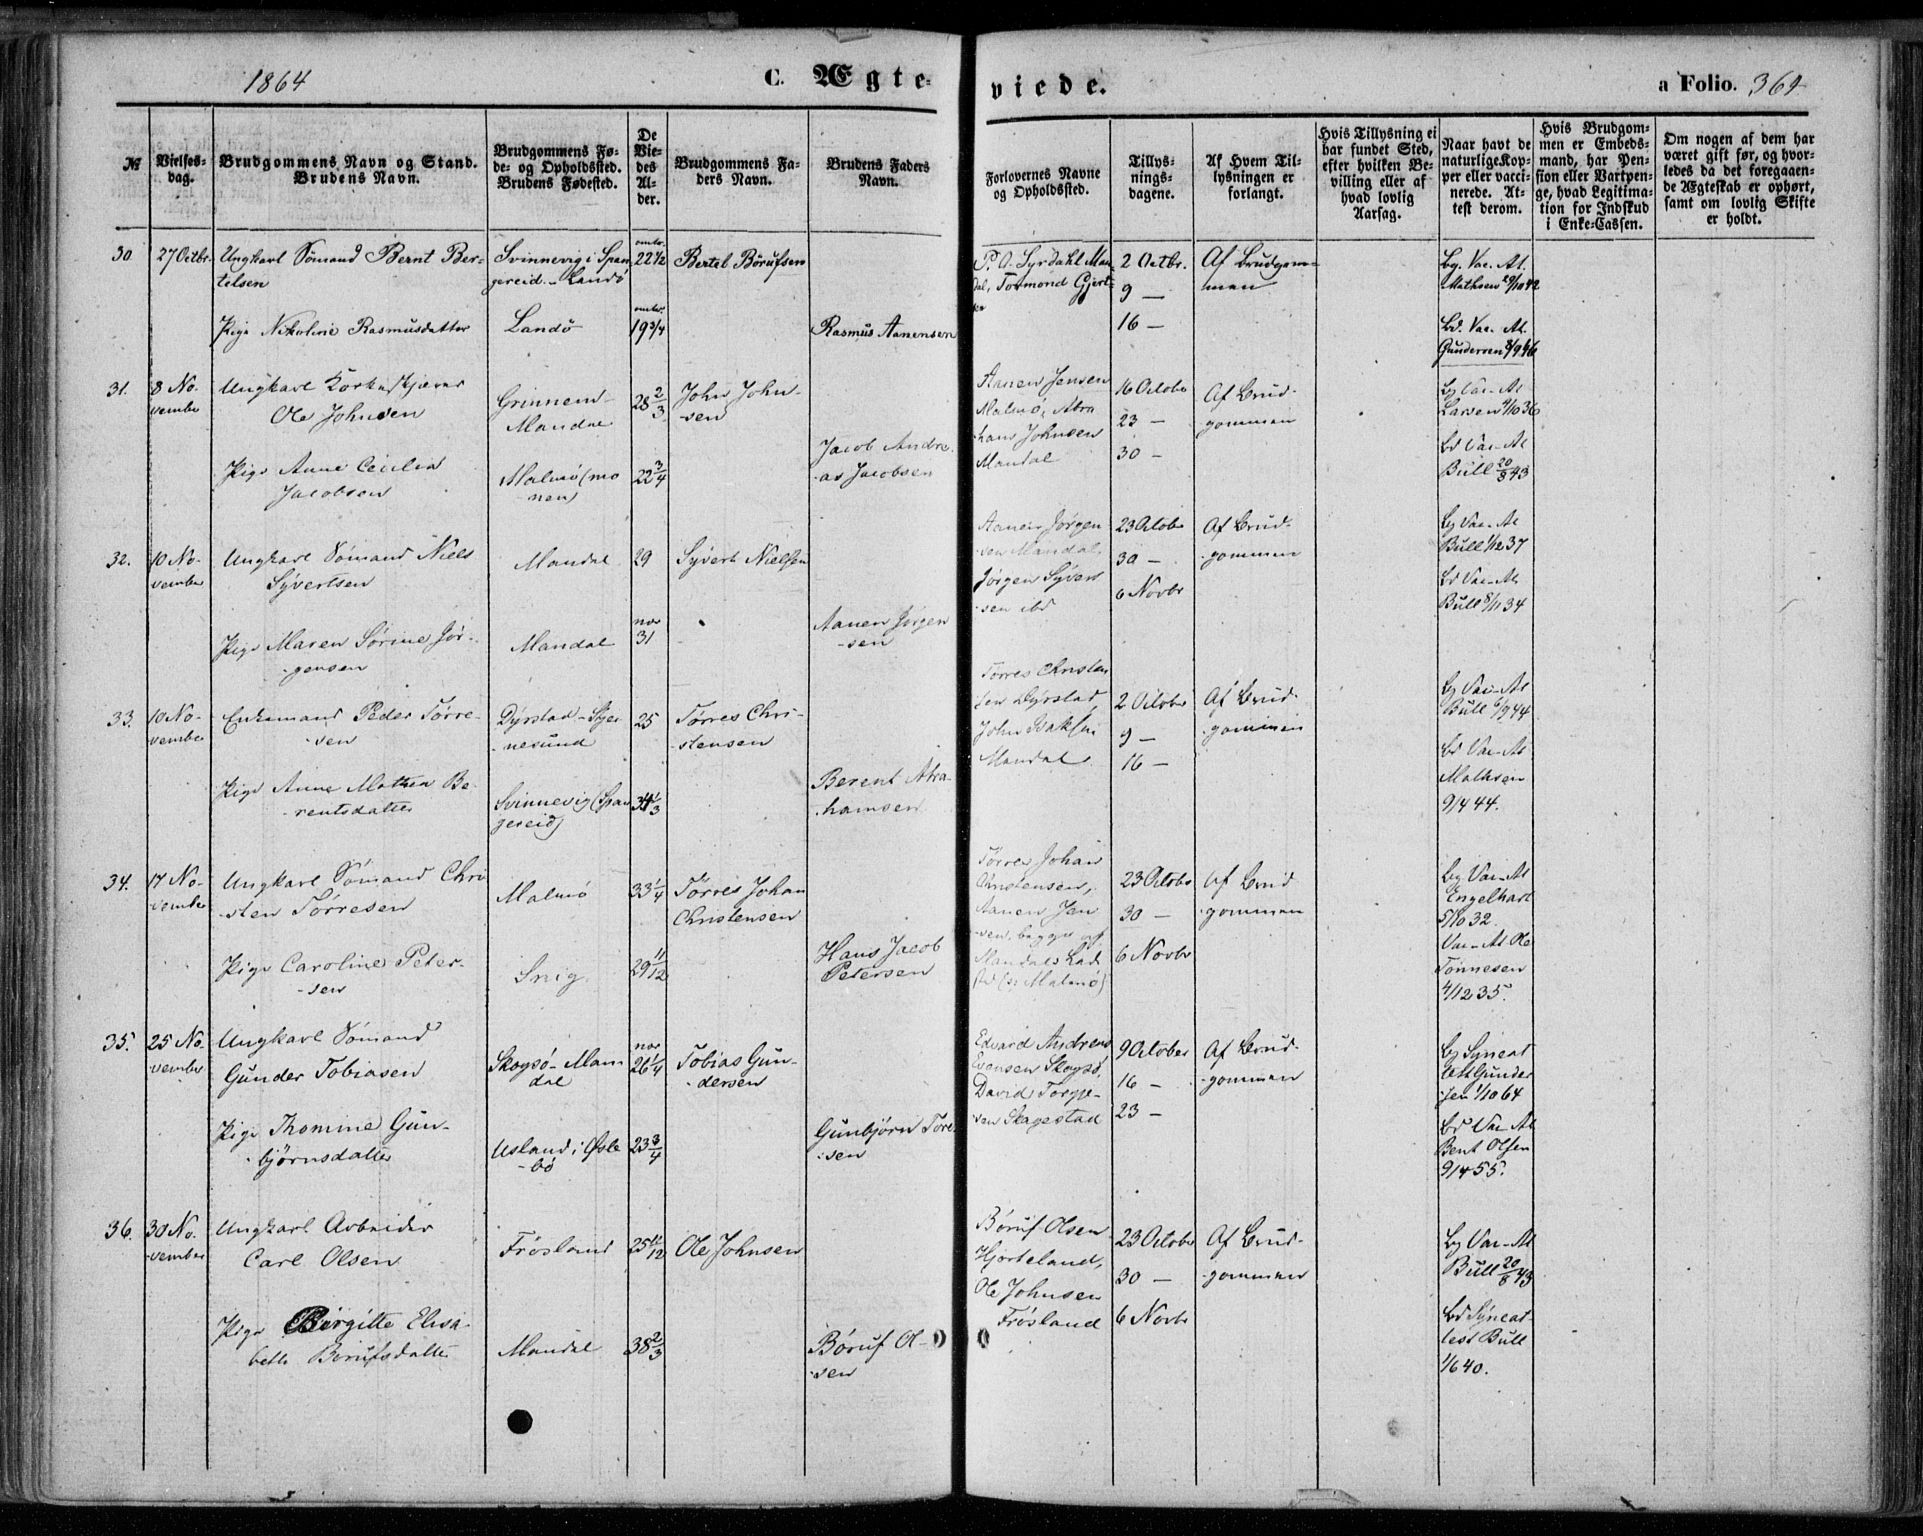 1864
C. Ægte-
viede.
a Folio. 364
№
Vielses-
dag.
Brudgommens Navn og Stand.
Brudens Navn.
Brudgommens Fø-
de- og Opholdssted.
Brudens Fødested.
De
Vie-
des
Al-
der.
Brudgommens Fa-
ders Navn.
Brudens Faders
Navn.
Forlovernes Navne
og Opholdssted.
Tillys-
nings-
dagene.
Af Hvem Til-
lysningen er
forlangt.
Hvis Tillysning ei
har fundet Sted,
efter hvilken Be-
villing eller af
hvad lovlig
Aarsag.
Naar havt de
naturlige Kop-
per eller vacci-
nerede. At-
test derom.
Hvis Brudgom-
men er Embeds-
mand, har Pen-
sion eller Vartpen-
ge, hvad Legitima-
tion for Indskud
i Enke-Cassen.
Om nogen af dem har
været gift før, og hvor-
ledes da det foregaaen-
de Ægteskab er ophørt,
samt om lovlig Skifte
er holdt.
30
27 Octbr.
Ungkarl Sømand Bernt Ber-
telsen
Svinnevig i Span
gereid - Landø
omtr.
22 1/2
Bertel Børufsen
P. O. Syrdahl Man-
dal, Tormond Gjert-
2 Octbr.
9 —
16 —
Af Brudgom-
men
Bg. Vac. At.
Mathsen 29/10 42
Pige Nikoline Rasmusdatter
Landø
omtr.
19 3/4
Rasmus Aanensen
Bd. Vac. At.
Gundersen 8/9 46
31.
8 No-
vember
Ungkarl
Ole Johnsen
Grinnem-
Mandal
28 2/3
John John-
sen
Aanen Jensen
Malmø, Abra
ham Johnsen
Mandal
16 Octobr
23 —
30 —
Af Brud-
gommen
Bg Vac- At
Larsen 4/10 36
Pige Anne Cecilia
Jacobsen
Malmø
22 3/4
Jacob Andre-
as Jacobsen
Bd Vac- At
Bull 20/8 43
32.
10 No-
vember
Ungkarl Sømand Niels
Syvertsen
Mandal
29
Syvert Nielsen
Aanen Jørgen
sen Mandal,
Jørgen Syvert
sen ibd
23 Octobr
30 —
6 Novbr
Af Brud-
gommen
Bg Vac- At
Bull 1/12 37
Bd Vac- At
Bull 8/11 34
Pige Maren Sørine Jør-
gensen
Mandal
nær
31
Aanen Jørgen
-sen
33.
10 No-
vember
Enkemand Peder Tørre-
sen
Dyrstad - Stjer
nesund
25
Tørres Chri-
stensen
Tørres Christen
sen Dyrstad,
John Isaksen
Mandal
2 October
9 —
16 —
Af Brud-
gommen
Bg Vac- At
Bull 6/9 44
Pige Anne Mathea Be-
rentsdatter
Svinnevig (Span
gereid)
34 1/3
Berent Abra-
hamsen
Bd Vac- At
Mathsen
9/4 44.
34.
17 No-
vember
Ungkarl Sømand Chri
sten Tørresen
Malmø
33 1/4
Tørres Johan
Christensen
Tørres Johan
Christensen,
Aanen Jen
sen, begge af
Mandals Lad
sted (s: Malmø)
23 Octobr
30 —
6 Novbr
Af Brud
gommen
Bg Vac- At
Engelhart
5/10 32
Pige Caroline Peter-
sen
Snig
29 11/12
Hans Jacob
Petersen
Vac- At Ole
Tønnesen
4/12 35.
35.
25 No-
vember
Ungkarl Sømand
Gunder Tobiasen
Skogsø - Man
dal
nær
26 1/4
Tobias Gun-
dersen
Edvard Andreas
Evensen Skogsø,
David Torgje-
sen Skagestad
9 October
16 —
23 —
Af Brud-
gommen
Bg Syneat
test Gunder
sen 1/10 64
Pige Thomine Gun-
bjørnsdatter
Usland i Øsle-
bø
23 3/4
Gunbjørn Tore
sen
Bd Vac- At
Bent Olsen
9/4 55.
36.
30 No-
vember
Ungkarl Arbeider
Carl Olsen
Frøsland
25 11/12
Ole Johnsen
Børuf Olsen
Hjorteland,
Ole Johnsen
Frøsland
23 October
30 —
6 Novbr
Af Brud-
gommen
Bg Vac- At
Bull 20/8 43
Pige Birgitte Elisa-
beth Børufsdatter
Mandal
38 2/3
Børuf Ol-
sen
Bd Syneat-
test Bull
1/6 40.